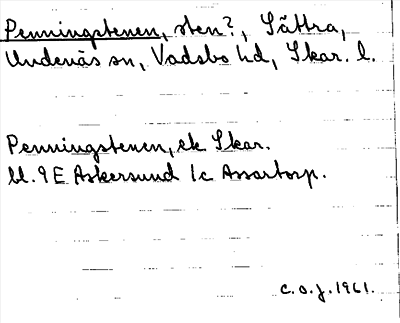 Penningstenen, sten?, Sättra,
Undenäs sn, Vadsbo hd, Skar. l.
Penningstenen, ek Skar.
bl. 9 E Askersund 1c Assartorp.
c.o.j. 1961.